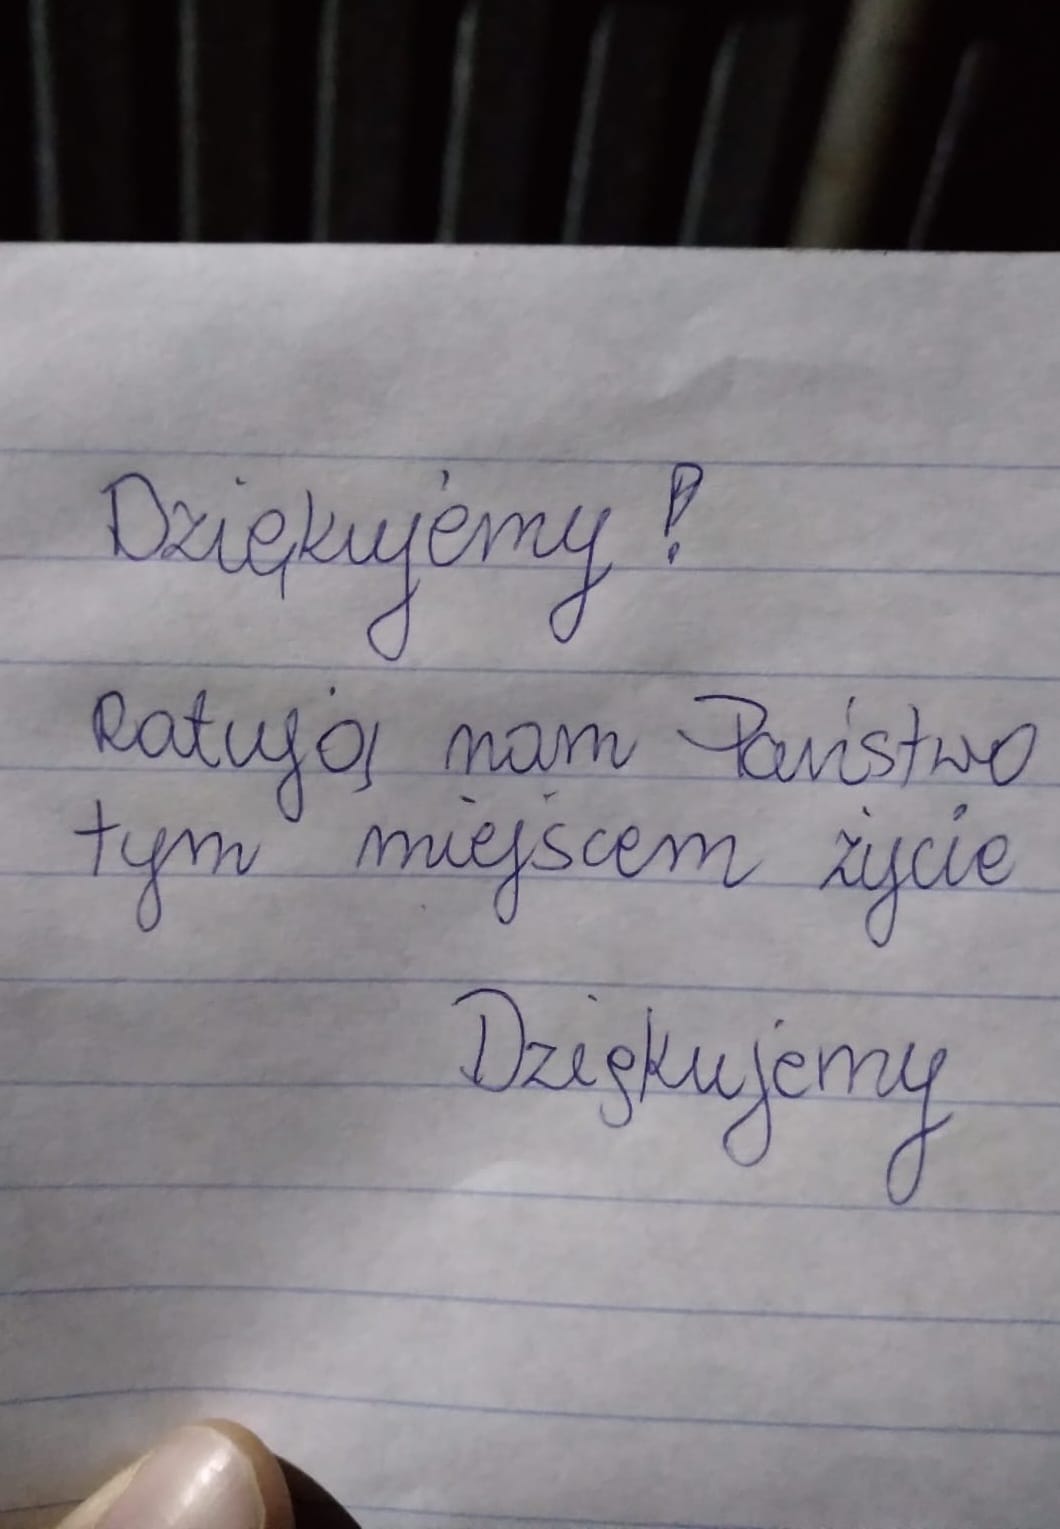 Dziękujemy!
Ratują nam Państwo
tym miejscem życie
Dziękujemy